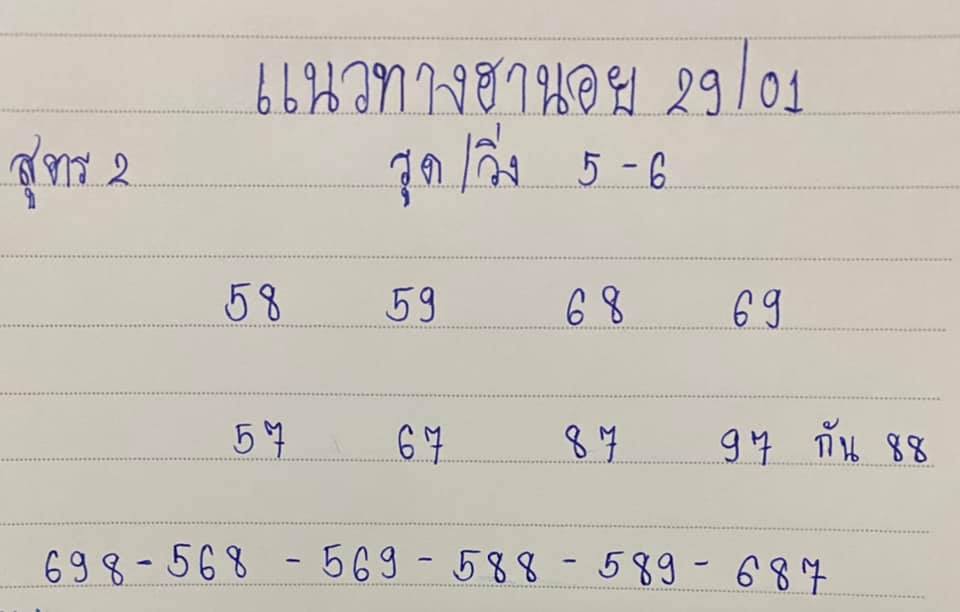 แนวทางฮานอย 29/01
สูตร 2 รูด/วิ่ง 5-6
58 59 68 69
57 67 87 97 กัน 88
698-568-569-588-589-687